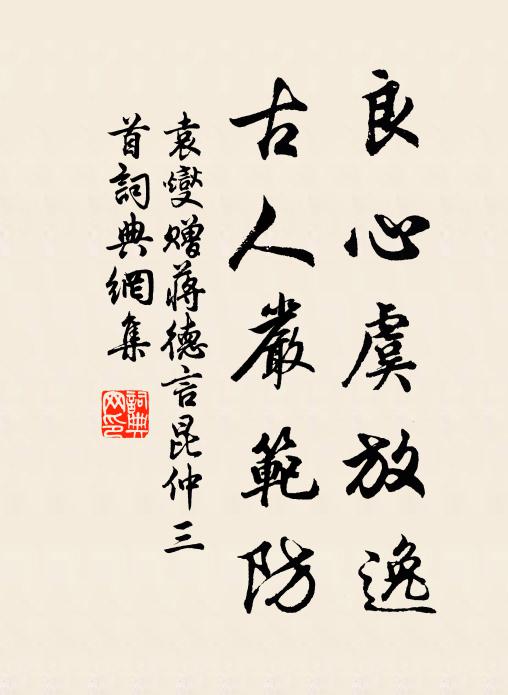 良心虞放逸
古人嚴範防
袁燮贈蔣德言昆仲三
首詞典網集
詞典
网印